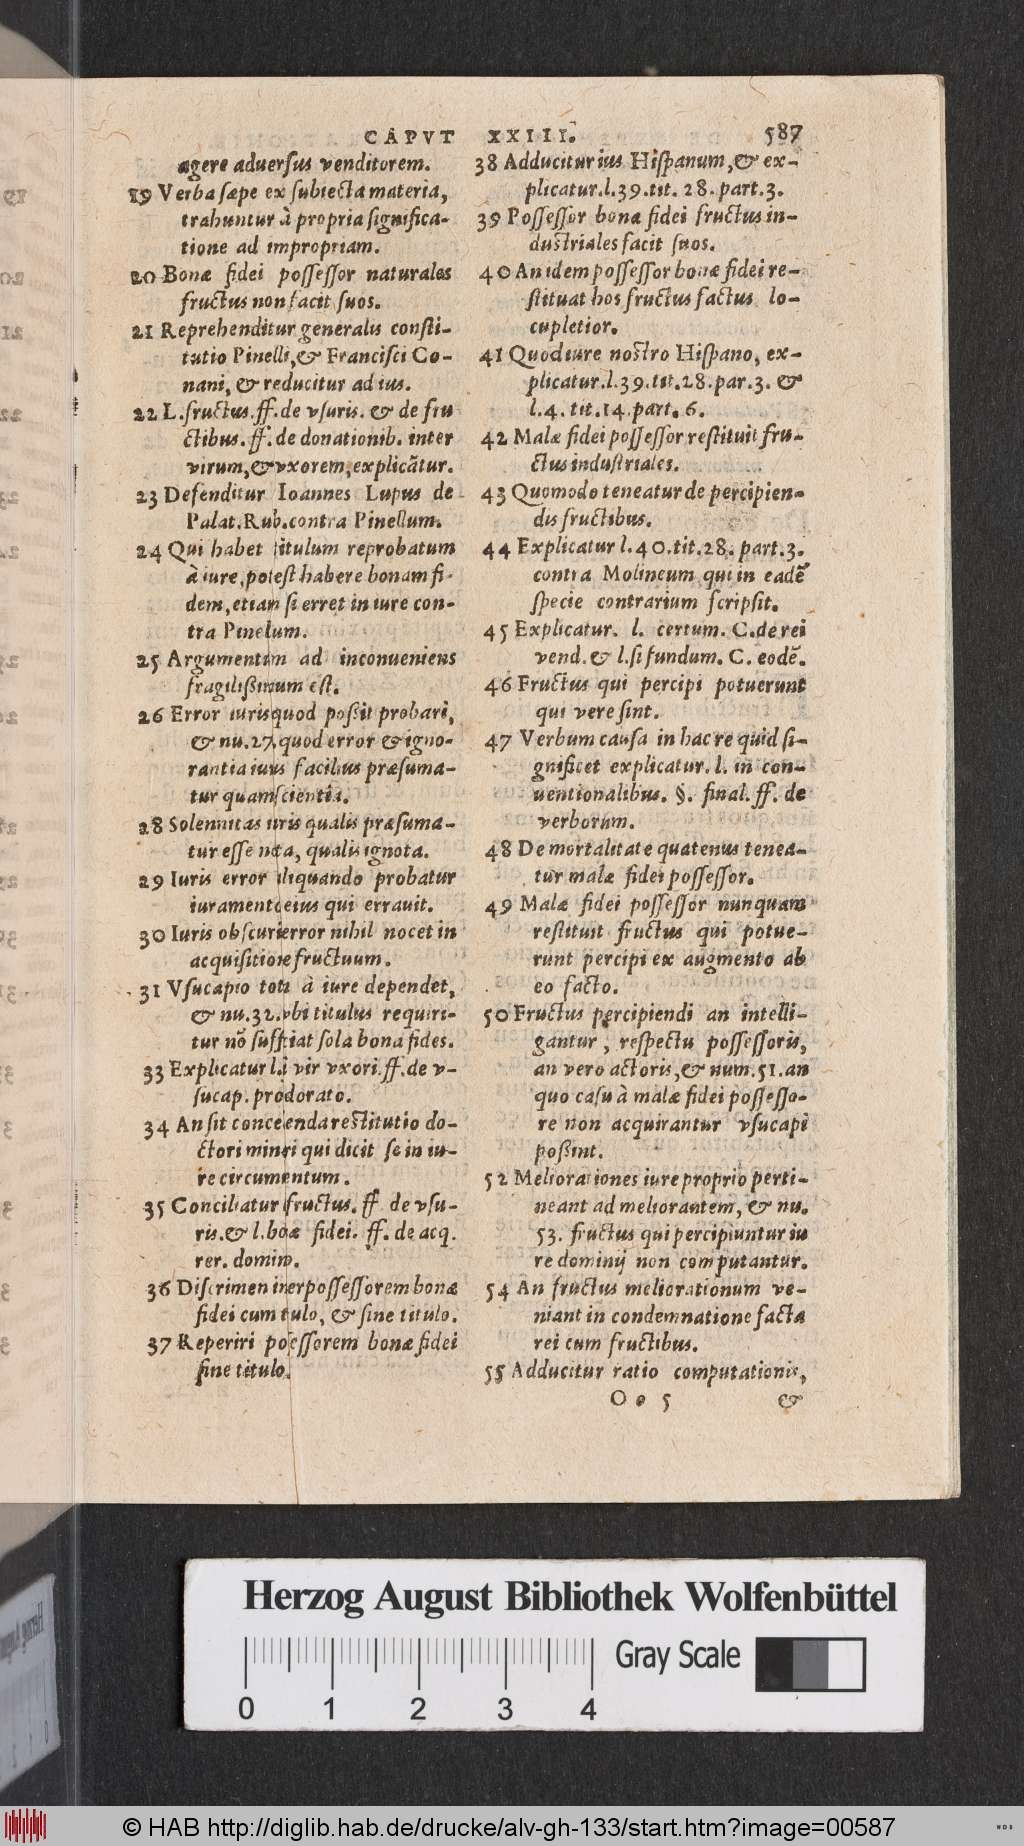 CAPVT XXIII. 587
agere aduerſus venditorem.
19 Verba ſæpe ex ſubiecta materia,
trahuntur à propria ſignifica-
tione ad impropriam.
20 Bonæ fidei poſſeſſor naturales
fructus non facit ſuos.
21 Reprehenditur generalis conſti-
tutio Pinelli, & Franciſci Co-
nani, & reducitur ad ius.
22 L. fructus. ff. de vſuris. & de fru
ctibus. ff. de donationib. inter
virum, & vxorem, explicātur.
23 Defenditur Ioannes Lupus de
Palat. Rub. contra Pinellum.
24 Qui habet titulum reprobatum
à iure, poteſt habere bonam fi-
dem, etiam ſi erret in iure con-
tra Pinelum.
25 Argumentum ad inconueniens
fragilißimum eſt.
26 Error iuris quod poßit probari,
& nu. 27. quod error & igno-
rantia iuris facilius præſuma-
tur quam ſcientia.
28 Solennitas iuris qualis præſuma-
tur eſſe nota, qualis ignota.
29 Iuris error aliquando probatur
iuramento eius qui errauit.
30 Iuris obſcuri error nihil nocet in
acquiſitione fructuum.
31 Vſucapio tota à iure dependet,
& nu. 32. vbi titulus requiri-
tur nō ſufficiat ſola bona fides.
33 Explicatur l. ſi vir vxori. ff. de v-
ſucap. pro dorato.
34 An ſit concedenda reſtitutio do-
ctori minori qui dicit ſe in iu-
re circumuentum.
35 Conciliatur fructus. ff. de vſu-
ris. & l. bonæ fidei. ff. de acq.
rer. domin.
36 Diſcrimen inter poſſeſſorem bonæ
fidei cum titulo, & ſine titulo.
37 Reperiri poſſeſſorem bonæ fidei
ſine titulo.
38 Adducitur ius Hiſpanum, & ex-
plicatur. l. 39. tit. 28. part. 3.
39 Poſſeſſor bonæ fidei fructus in-
duſtriales facit ſuos.
40 An idem poſſeſſor bonæ fidei re-
ſtituat hos fructus factus lo-
cupletior.
41 Quod iure noſtro Hiſpano, ex-
plicatur. l. 39. tit. 28. par. 3. &
l. 4. tit. 14. part. 6.
42 Malæ fidei poſſeſſor reſtituit fru-
ctus induſtriales.
43 Quomodo teneatur de percipien-
dis fructibus.
44 Explicatur l. 40. tit. 28. part. 3.
contra Molineum qui in eadē
ſpecie contrarium ſcripſit.
45 Explicatur. l. certum. C. de rei
vend. & l. ſi fundum. C. eodē.
46 Fructus qui percipi potuerunt
qui vere ſint.
47 Verbum cauſa in hac re quid ſi-
gnificet explicatur. l. in con-
uentionalibus. §. final. ff. de
verborum.
48 De mortalitate quatenus tenea-
tur malæ fidei poſſeſſor.
49 Malæ fidei poſſeſſor nunquam
reſtituit fructus qui potue-
runt percipi ex augmento ab
eo facto.
50 Fructus percipiendi an intelli-
gantur, reſpectu poſſeſſoris,
an vero actoris, & num. 51. an
quo caſu à malæ fidei poſſeſſo-
re non acquirantur vſucapi
poßint.
52 Meliorationes iure proprio perti-
neant ad meliorantem, & nu.
53. fructus qui percipiuntur iu
re dominij non computantur.
54 An fructus meliorationum ve-
niant in condemnatione facta
rei cum fructibus.
55 Adducitur ratio computationis,
Oo 5 &
Herzog August Bibliothek Wolfenbüttel
Gray Scale
0 1 2 3 4
© HAB http://diglib.hab.de/drucke/alv-gh-133/start.htm?image=00587